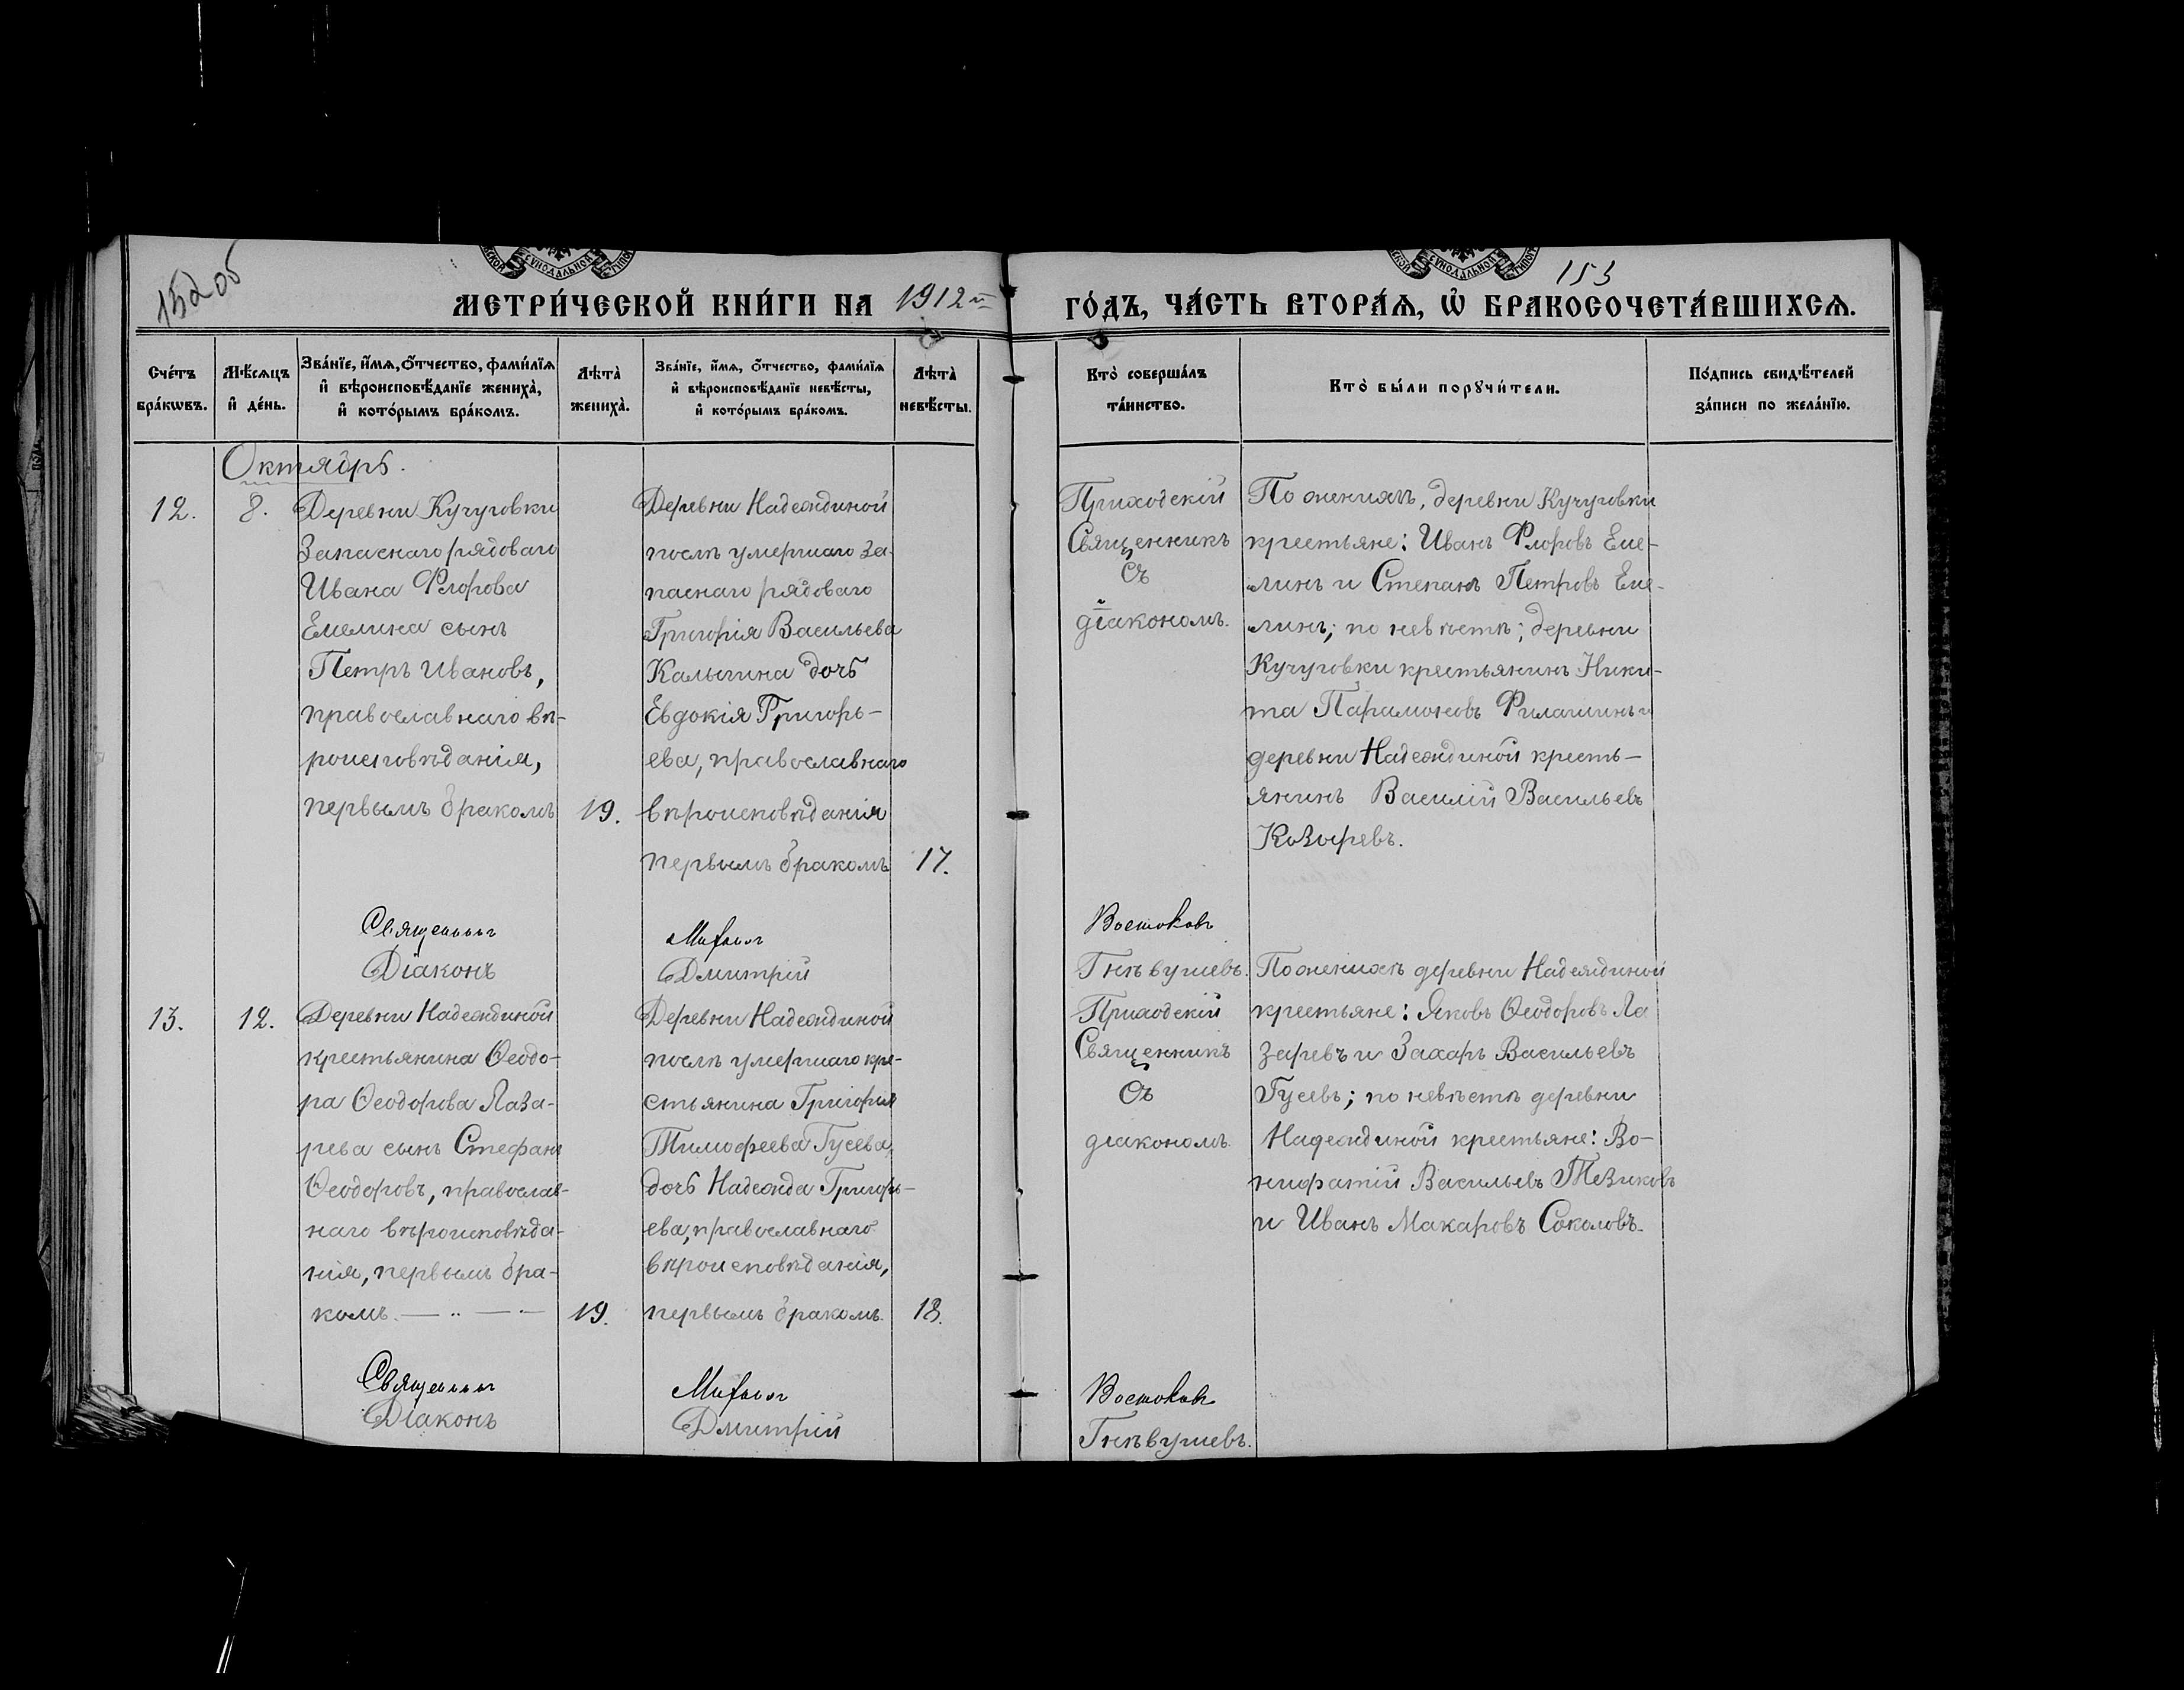 152об
153
МЕТРИ́ЧЕСКОЙ КНИ́ГИ НА 1912й ГО́ДЪ, ЧА́СТЬ ВТОРА́Ѧ, Ѽ БРАКОСОЧЕТА́ВШИХСѦ.
Сче́тъ бра́кѡвъ.
Мѣ́сѧцъ и҆ де́нь.
Зва́нїе, и҆́мѧ, ѻ҆́тчество, фами́лїѧ и҆ вѣроисповѣ́данїе жениха̀, и҆ кото́рымъ бра́комъ.
Лѣта̀ жениха̀.
Зва́нїе, и҆́мѧ, ѻ҆́тчество, фами́лїѧ и҆ вѣроисповѣ́данїе невѣ́сты, и҆ кото́рымъ бра́комъ.
Лѣта̀ невѣ́сты.
Кто̀ соверша́лъ та́инство.
Кто̀ бы́ли порꙋчи́тели.
По́дпись свидѣ́телей за́писи по жела́нїю.
Октябрь.
12.
8.
Деревни Кучуговки
Запаснаго рядоваго
Ивана Флорова
Емелина сынъ
Петръ Ивановъ,
православнаго вѣ-
роисповѣданія,
первымъ бракомъ
19.
Деревни Надеждиной
послѣ умершаго за-
паснаго рядоваго
Григорія Васильева
Калыгина дочь
Евдокія Григорь-
ева, православнаго
вѣроисповѣданія
первымъ бракомъ
17.
Приходскій
Священникъ
Съ
діакономъ.
По женихѣ, деревни Кучуговки
крестьяне: Иванъ Флоровъ Еме-
линъ и Степанъ Петровъ Еме-
линъ; по невѣстѣ; деревни
Кучуговки крестьянинъ Ники-
та Парамоновъ Филашинъ и
деревни Надеждиной кресть-
янинъ Василій Васильевъ
Козыревъ.
Священникъ Михаилъ Востоковъ
Діаконъ Дмитрій Гнѣвушевъ.
13.
12.
Деревни Надеждиной
крестьянина Ѳеодо-
ра Ѳеодорова Лаза-
рева сынъ Стефанъ
Ѳеодоровъ, православ-
наго вѣроисповѣда-
нія, первымъ бра-
комъ. — .. — .-
19.
Деревни Надеждиной
послѣ умершаго кре-
стьянина Григорія
Тимофеева Гусева,
дочь Надежда Григорь-
ева, православнаго
вѣроисповѣданія,
первымъ бракомъ.
18.
Приходскій
Священникъ
Съ
діакономъ.
По женихѣ деревни Надеждиной
крестьяне: Яковъ Ѳеодоровъ Ла
заревъ и Захаръ Васильевъ
Гусевъ; по невѣстѣ деревни
Надеждиной крестьяне: Во-
нифатій Васильевъ Тезиковъ
и Иванъ Макаровъ Соколовъ.
Священникъ Михаилъ Востоковъ
Діаконъ Дмитрій Гнѣвушевъ.